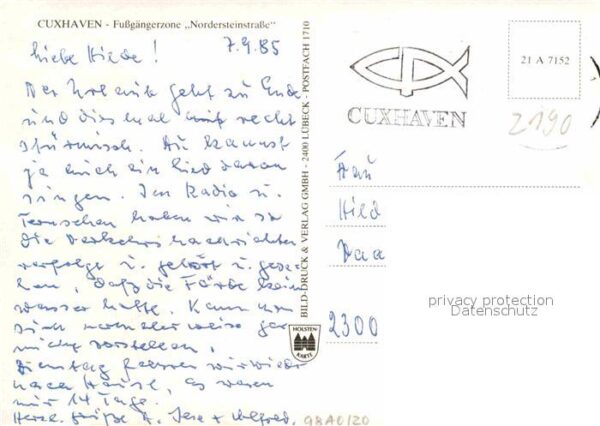 CUXHAVEN - Fußgängerzone „Nordersteinstraße"
7.9.85
Liebe Hilde!
Der Urlaub geht zu Ende
und diesmal mit recht
stürmisch. Du kannst
ja auch ein Lied davon
singen. Im Radio u.
Fernsehen haben wir so
die Verkehrsnachrichten
verfolgt u. gehört u. gese-
hen, daß die Fähre kein
Wasser hatte. Kann man
sich normalerweise gar
nicht vorstellen.
Dienstag fahren wir wieder
nach Hause, es waren
nur 14 Tage.
Herzl. Grüße
BILD-DRUCK & VERLAG GMBH - 2400 LÜBECK - POSTFACH 1710
HOLSTEN
KARTE
CUXHAVEN
21 A 7152
2190
Frau
Hild
2300
privacy protection
Datenschutz
98A0120